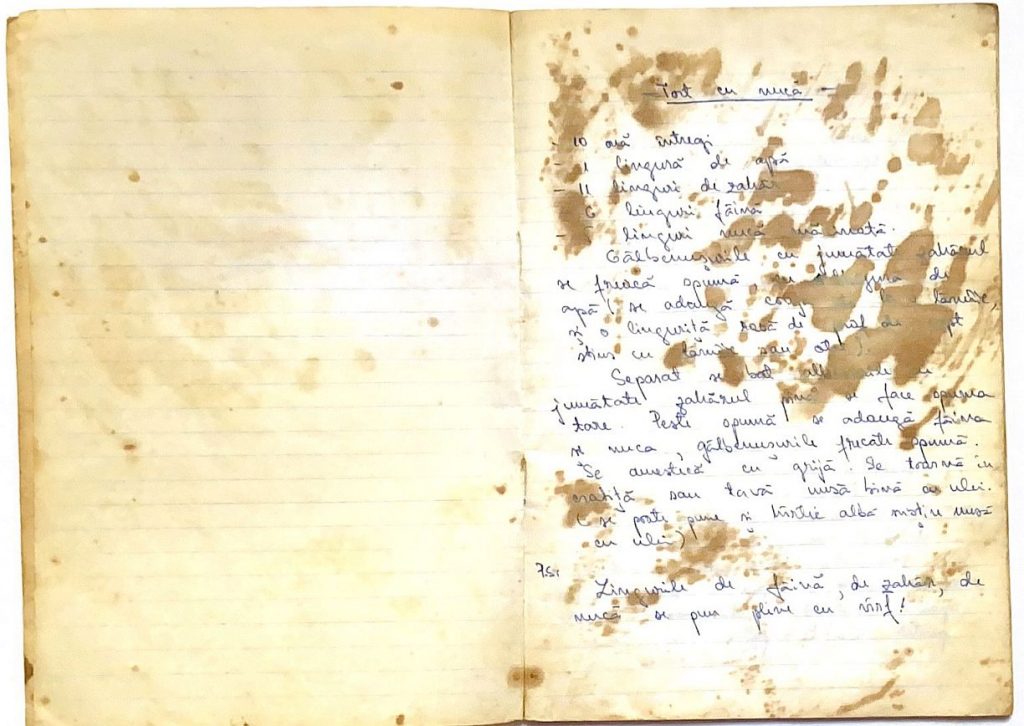 - Tort cu nucă -
- 10 ouă întregi
- 1 lingură de apă
- 11 linguri de zahăr
6 linguri făină
- linguri nucă măcinată.
Gălbenușurile cu jumătat zahărul
se freacă spumă, cu lingura de
apă (se adaugă lămîie,
și o linguriță rasă de praf de copt
stins cu lămîie sau oțet).
Separat se bat albușurile cu
jumătate zahărul pînă se face spuma
tare. Peste spumă se adaugă făina
și nuca, gălbenușurile frecate spumă.
Se amestecă cu grijă. Se toarnă în
cratiță sau tavă unsă bine cu ulei.
(se poate pune și hîrtie albă unsă
cu ulei)
P.S.
Lingurile de făină, de zahăr, de
nucă se pun pline cu vîrf!